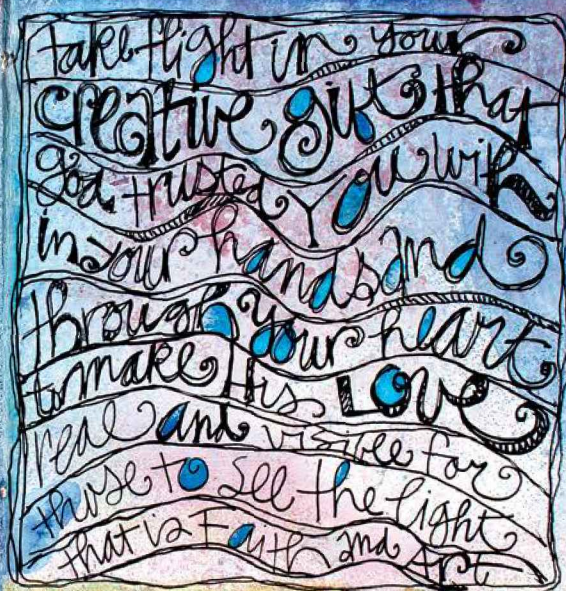 take flight in your
creative gift that
God trusted you with
in your hands and
through your heart
to make His LOVE
real and visible for
those to see the light
that is Faith and Art